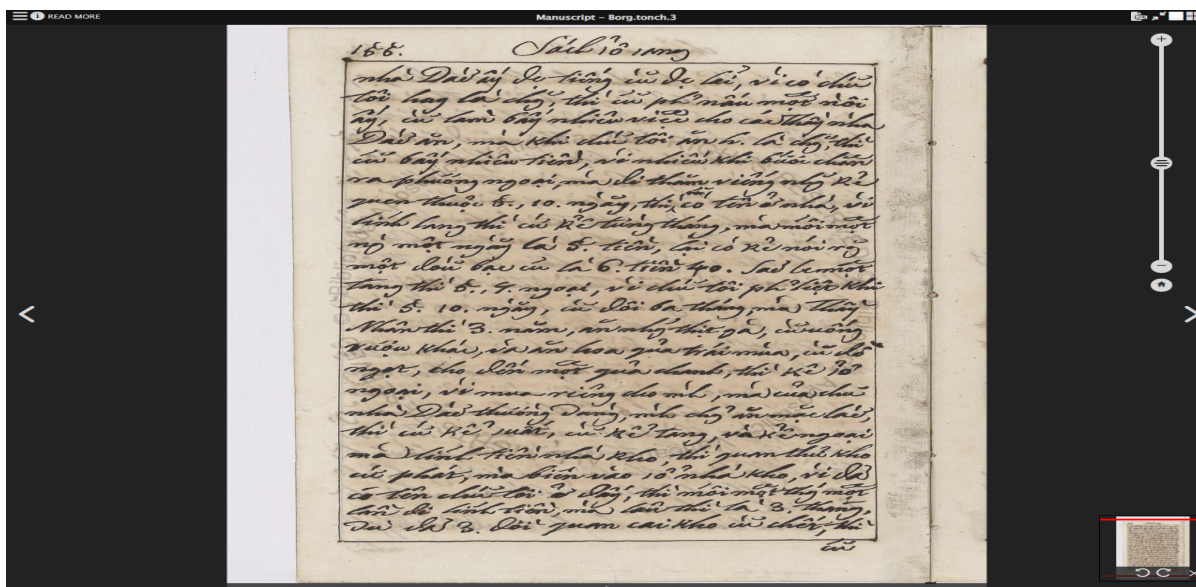 READ MORE
Manuscript – Borg.tonch.3
Sách sổ sang
nhà Dào ấy để tiếng cũ để lại, vì có chữ
tôi hay là chg, thì cũ ph nấu một nồi
ấy, cũ làm bấy nhiêu việc cho các thầy nhà
Dào ăn, mà khi chú tôi ăn h. là chg, thì
cũ bấy nhiêu tiền, vì nhiều khi buổi chuân
ra phương ngoại, mà đi thăm viếng nhg kẻ
quen thuộc 5., 10. ngày, thì cũ có tên ở nhà, vì
tính lang thì cứ kể từng tháng, mà mỗi một
ng một ngày là 5. tiền, lại có kẻ nói rg
một đấu bạc cũ là 6. tiền 40. Sau là một
tang thì 5., 4. ngoại, vì chú tôi ph liệt khi
thì 5. 10. ngày, cũ đôi ba tháng, mà Thầy
Nhân thì 3. năm, ăn nhg thịt gà, cũ uống
rượu khác, và ăn hoa quả trái mùa, cũ đồ
ngọt, cho đến một quả chanh, thì kể sổ
ngoại, vì mua riêng cho mh, mà của chú
nhà Dào thường dang, mh chg ăn mặc lấy,
thì cứ kể suất, cũ kể tang, và kể ngoại
mà tính tiền nhà kho, thì quan thủ kho
cứ phát, mà biên vào sổ nhà kho, vì đã
có tên chú tôi ở đấy, thì mỗi một thg một
lần đi lính tiền, mà lâu thì là 3. tháng.
Dù đủ 3. đời quan cai kho cũ chết, thì
cũ